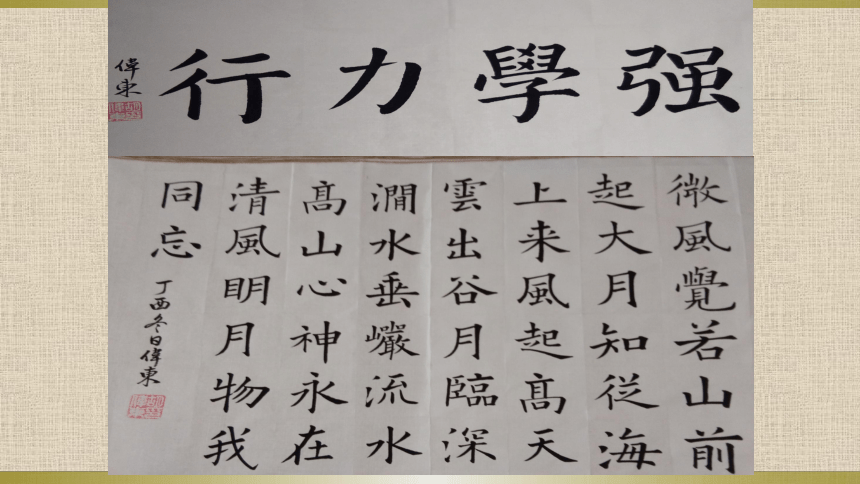 强學力行
偉東
微風覺若山前
起大月知従海
上来風起髙天
雲出谷月臨深
澗水垂巗流水
髙山心神永在
清風眀月物我
同忘
丁酉冬日偉東